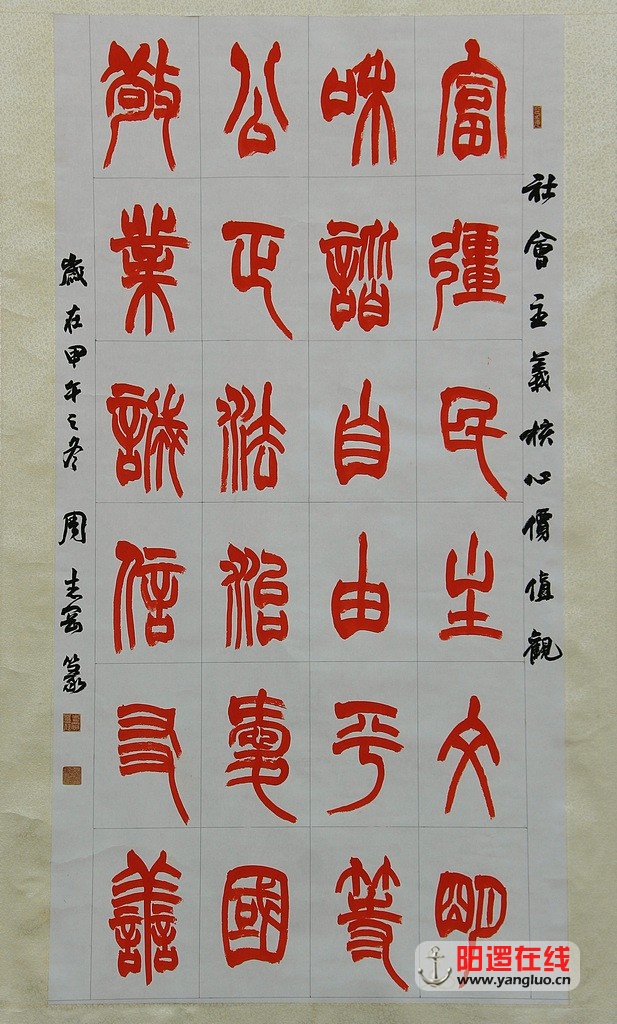 社會主義核心價值觀
富彊民主文明
和諧自由平等
公正法治愛國
敬業誠信友善
歲在甲午之冬 周 篆
阳逻在线
www.yangluo.cn